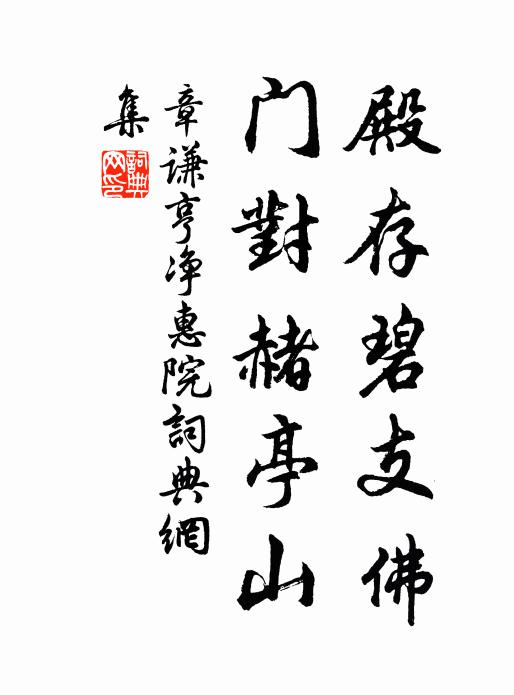 殿存碧支佛
门對赭亭山
章谦亨净惠院詞典網
集
詞典
网印